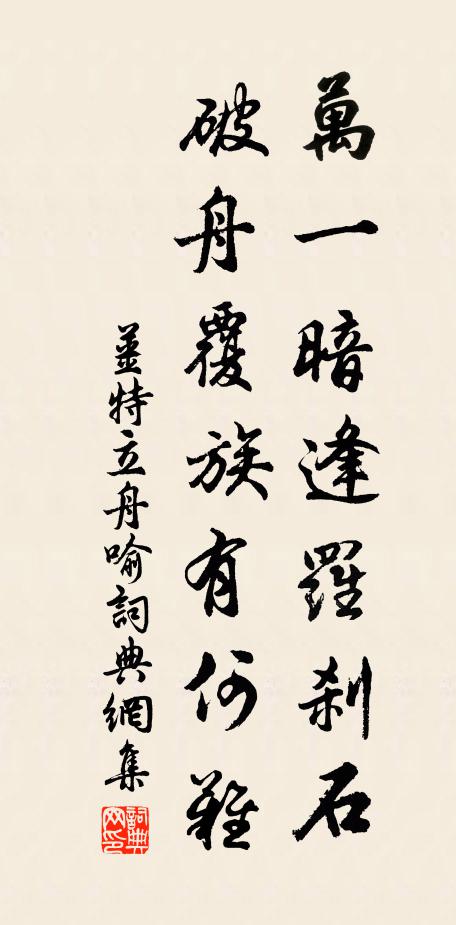 萬一暗逢羅剎石
破舟覆族有何難
姜特立舟喻詞典網集
詞典網印